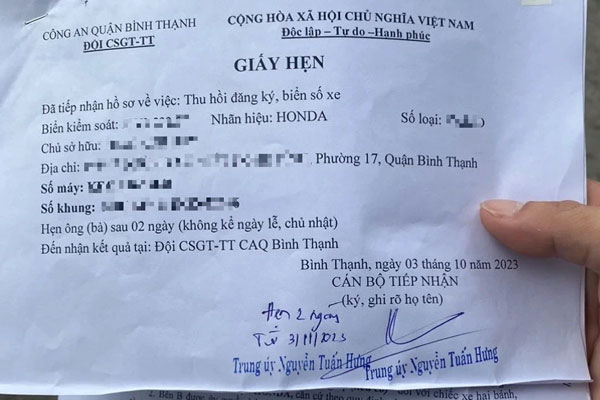 CÔNG AN QUẬN BÌNH THẠNH
ĐỘI CSGT-TT
CỘNG HÒA XÃ HỘI CHỦ NGHĨA VIỆT NAM
Độc lập – Tự do –Hạnh phúc
GIẤY HẸN
Đã tiếp nhận hồ sơ về việc: Thu hồi đăng ký, biển số xe
Biển kiểm soát: Nhãn hiệu: HONDA Số loại:
Chủ sở hữu:
Địa chỉ: , Phường 17, Quận Bình Thạnh
Số máy:
Số khung:
Hẹn ông (bà) sau 02 ngày (không kể ngày lễ, chủ nhật)
Đến nhận kết quả tại: Đội CSGT-TT CAQ Bình Thạnh
Bình Thạnh, ngày 03 tháng 10 năm 2023
CÁN BỘ TIẾP NHẬN
(ký, ghi rõ họ tên)
Hẹn 2 ngày
Từ 3/11/2023
Trung úy Nguyễn Tuấn Hưng
Trung úy Nguyễn Tuấn Hưng